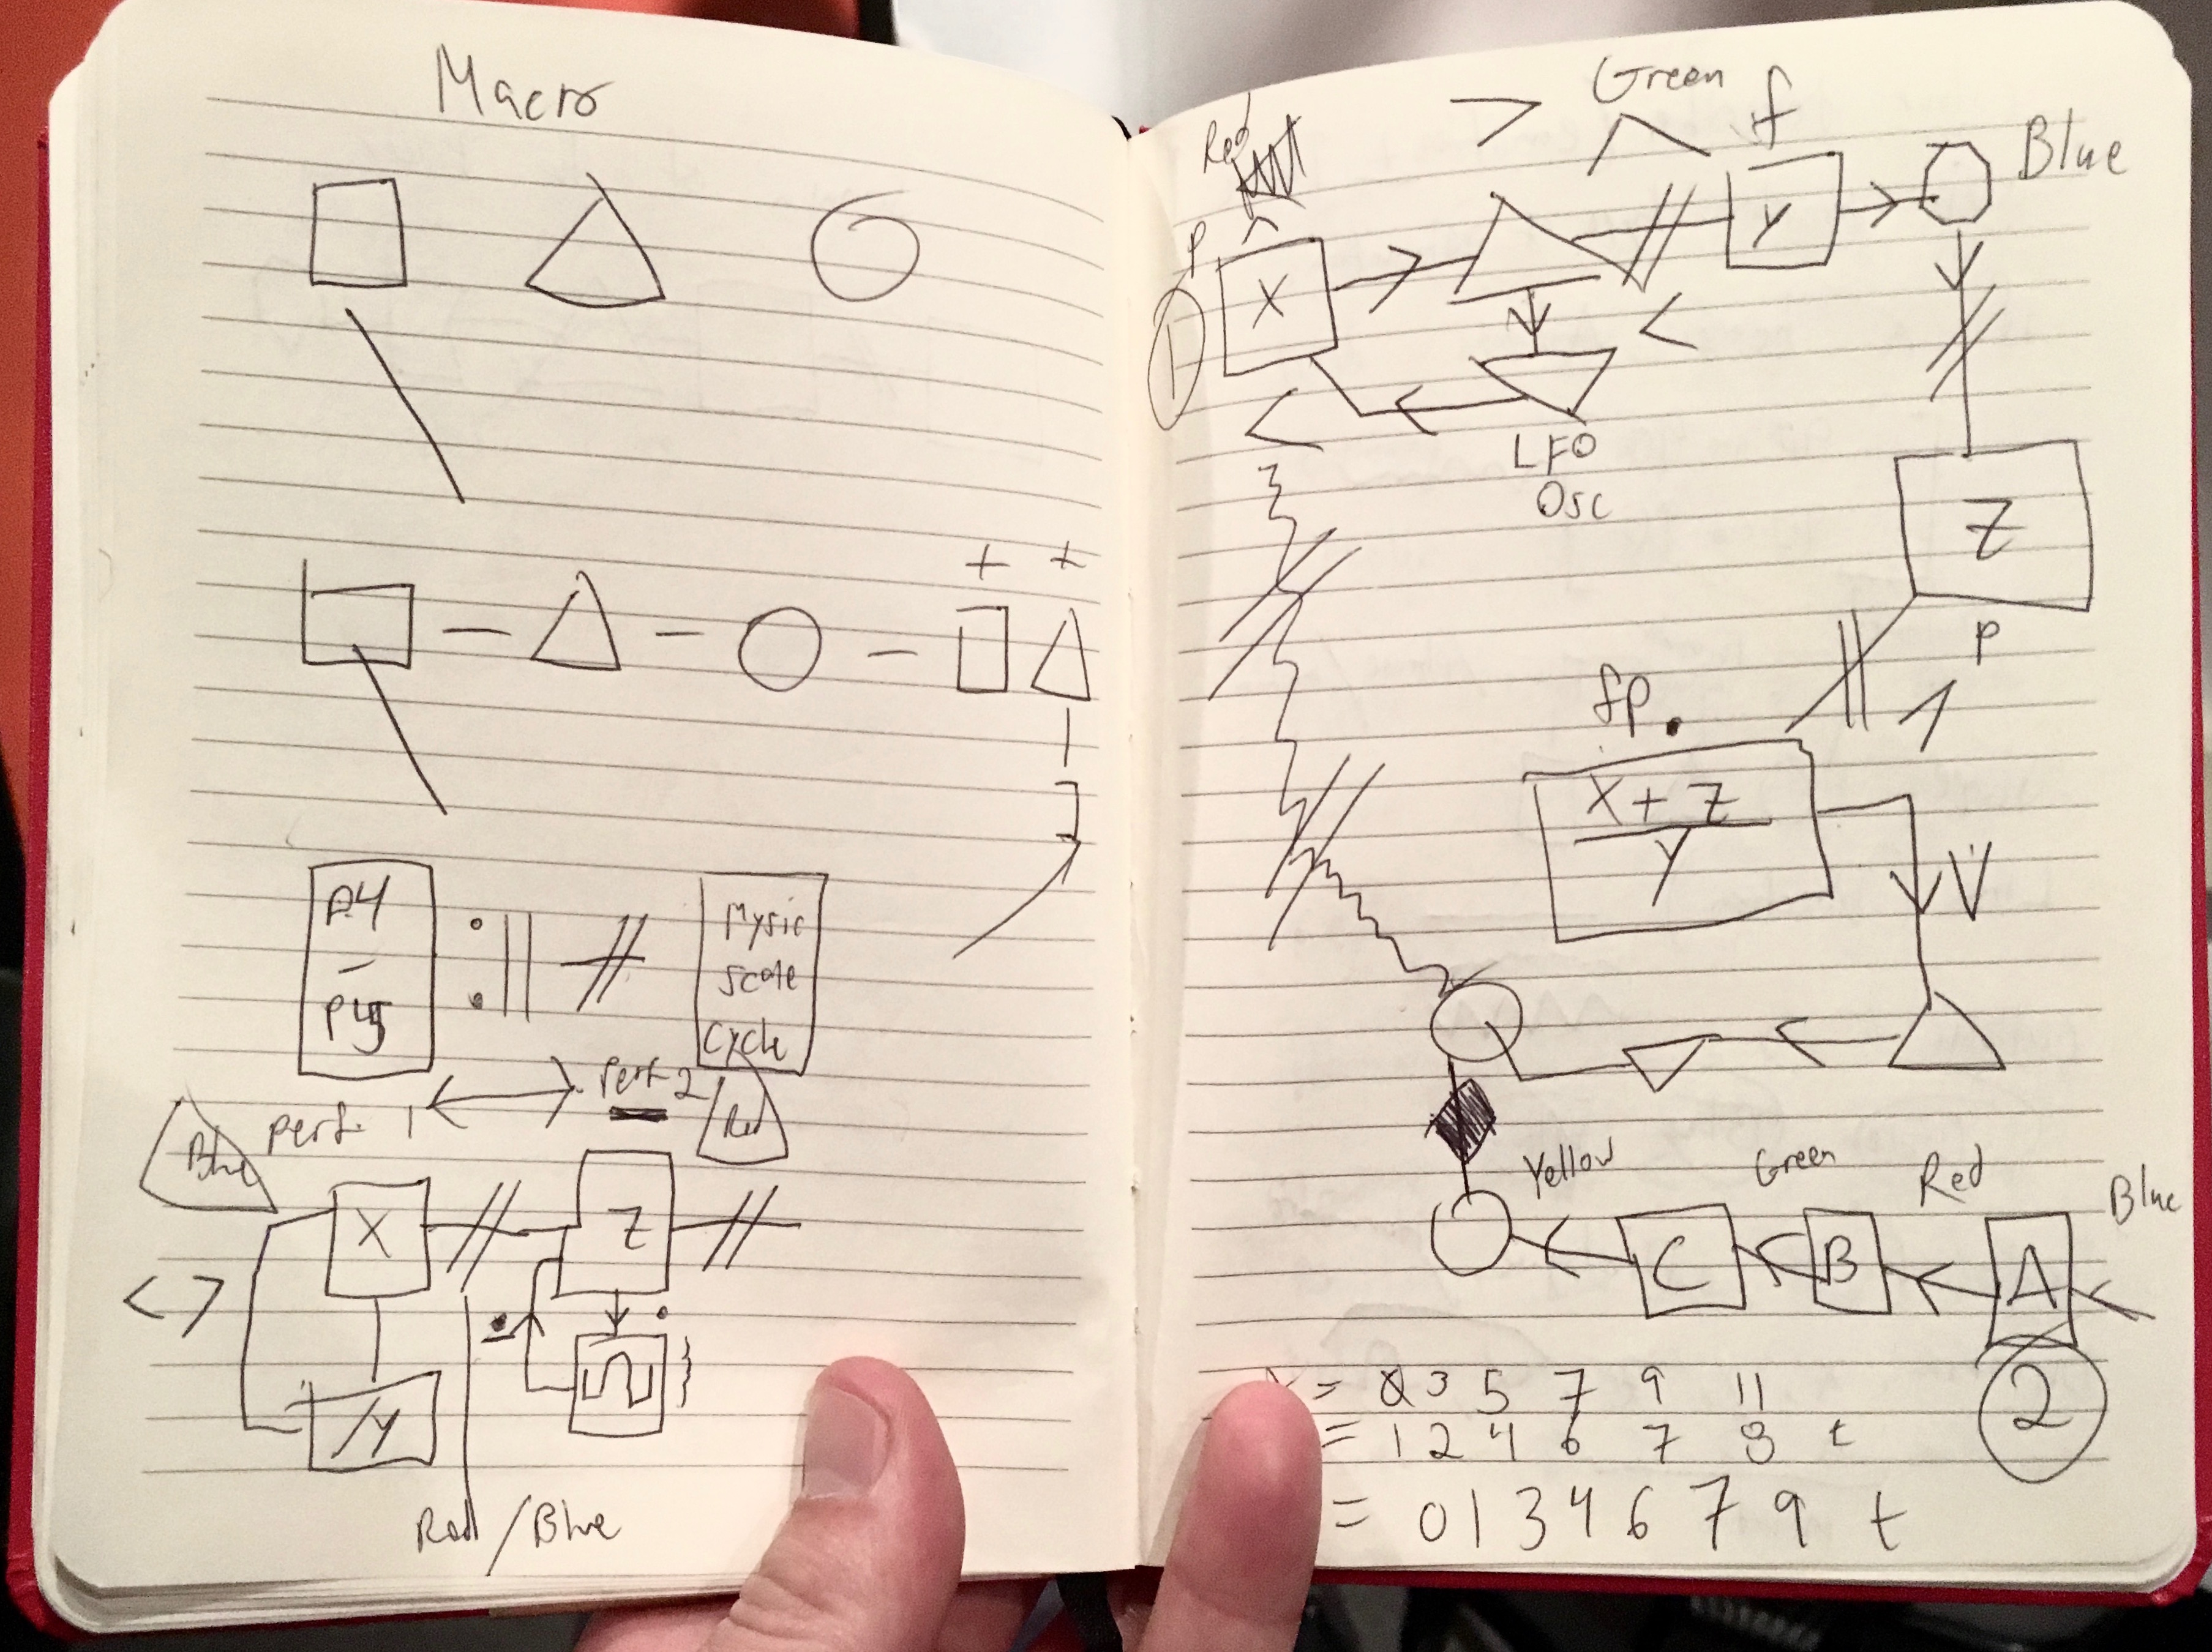 Macro
+ +
A4
-
P45
Mysic
scale
cycle
perf. 1
perf. 2
Blue
Red
X
Z
< >
/Y
Red / Blue
Green
Red
>
f
Blue
p
X
Y
1
<
LFO
Osc
Z
p
fp.
X + Z
Y
Yellow
Green
Red
Blue
C
B
A
2
= 3 5 7 9 11
= 1 2 4 6 7 8 t
= 0 1 3 4 6 7 9 t